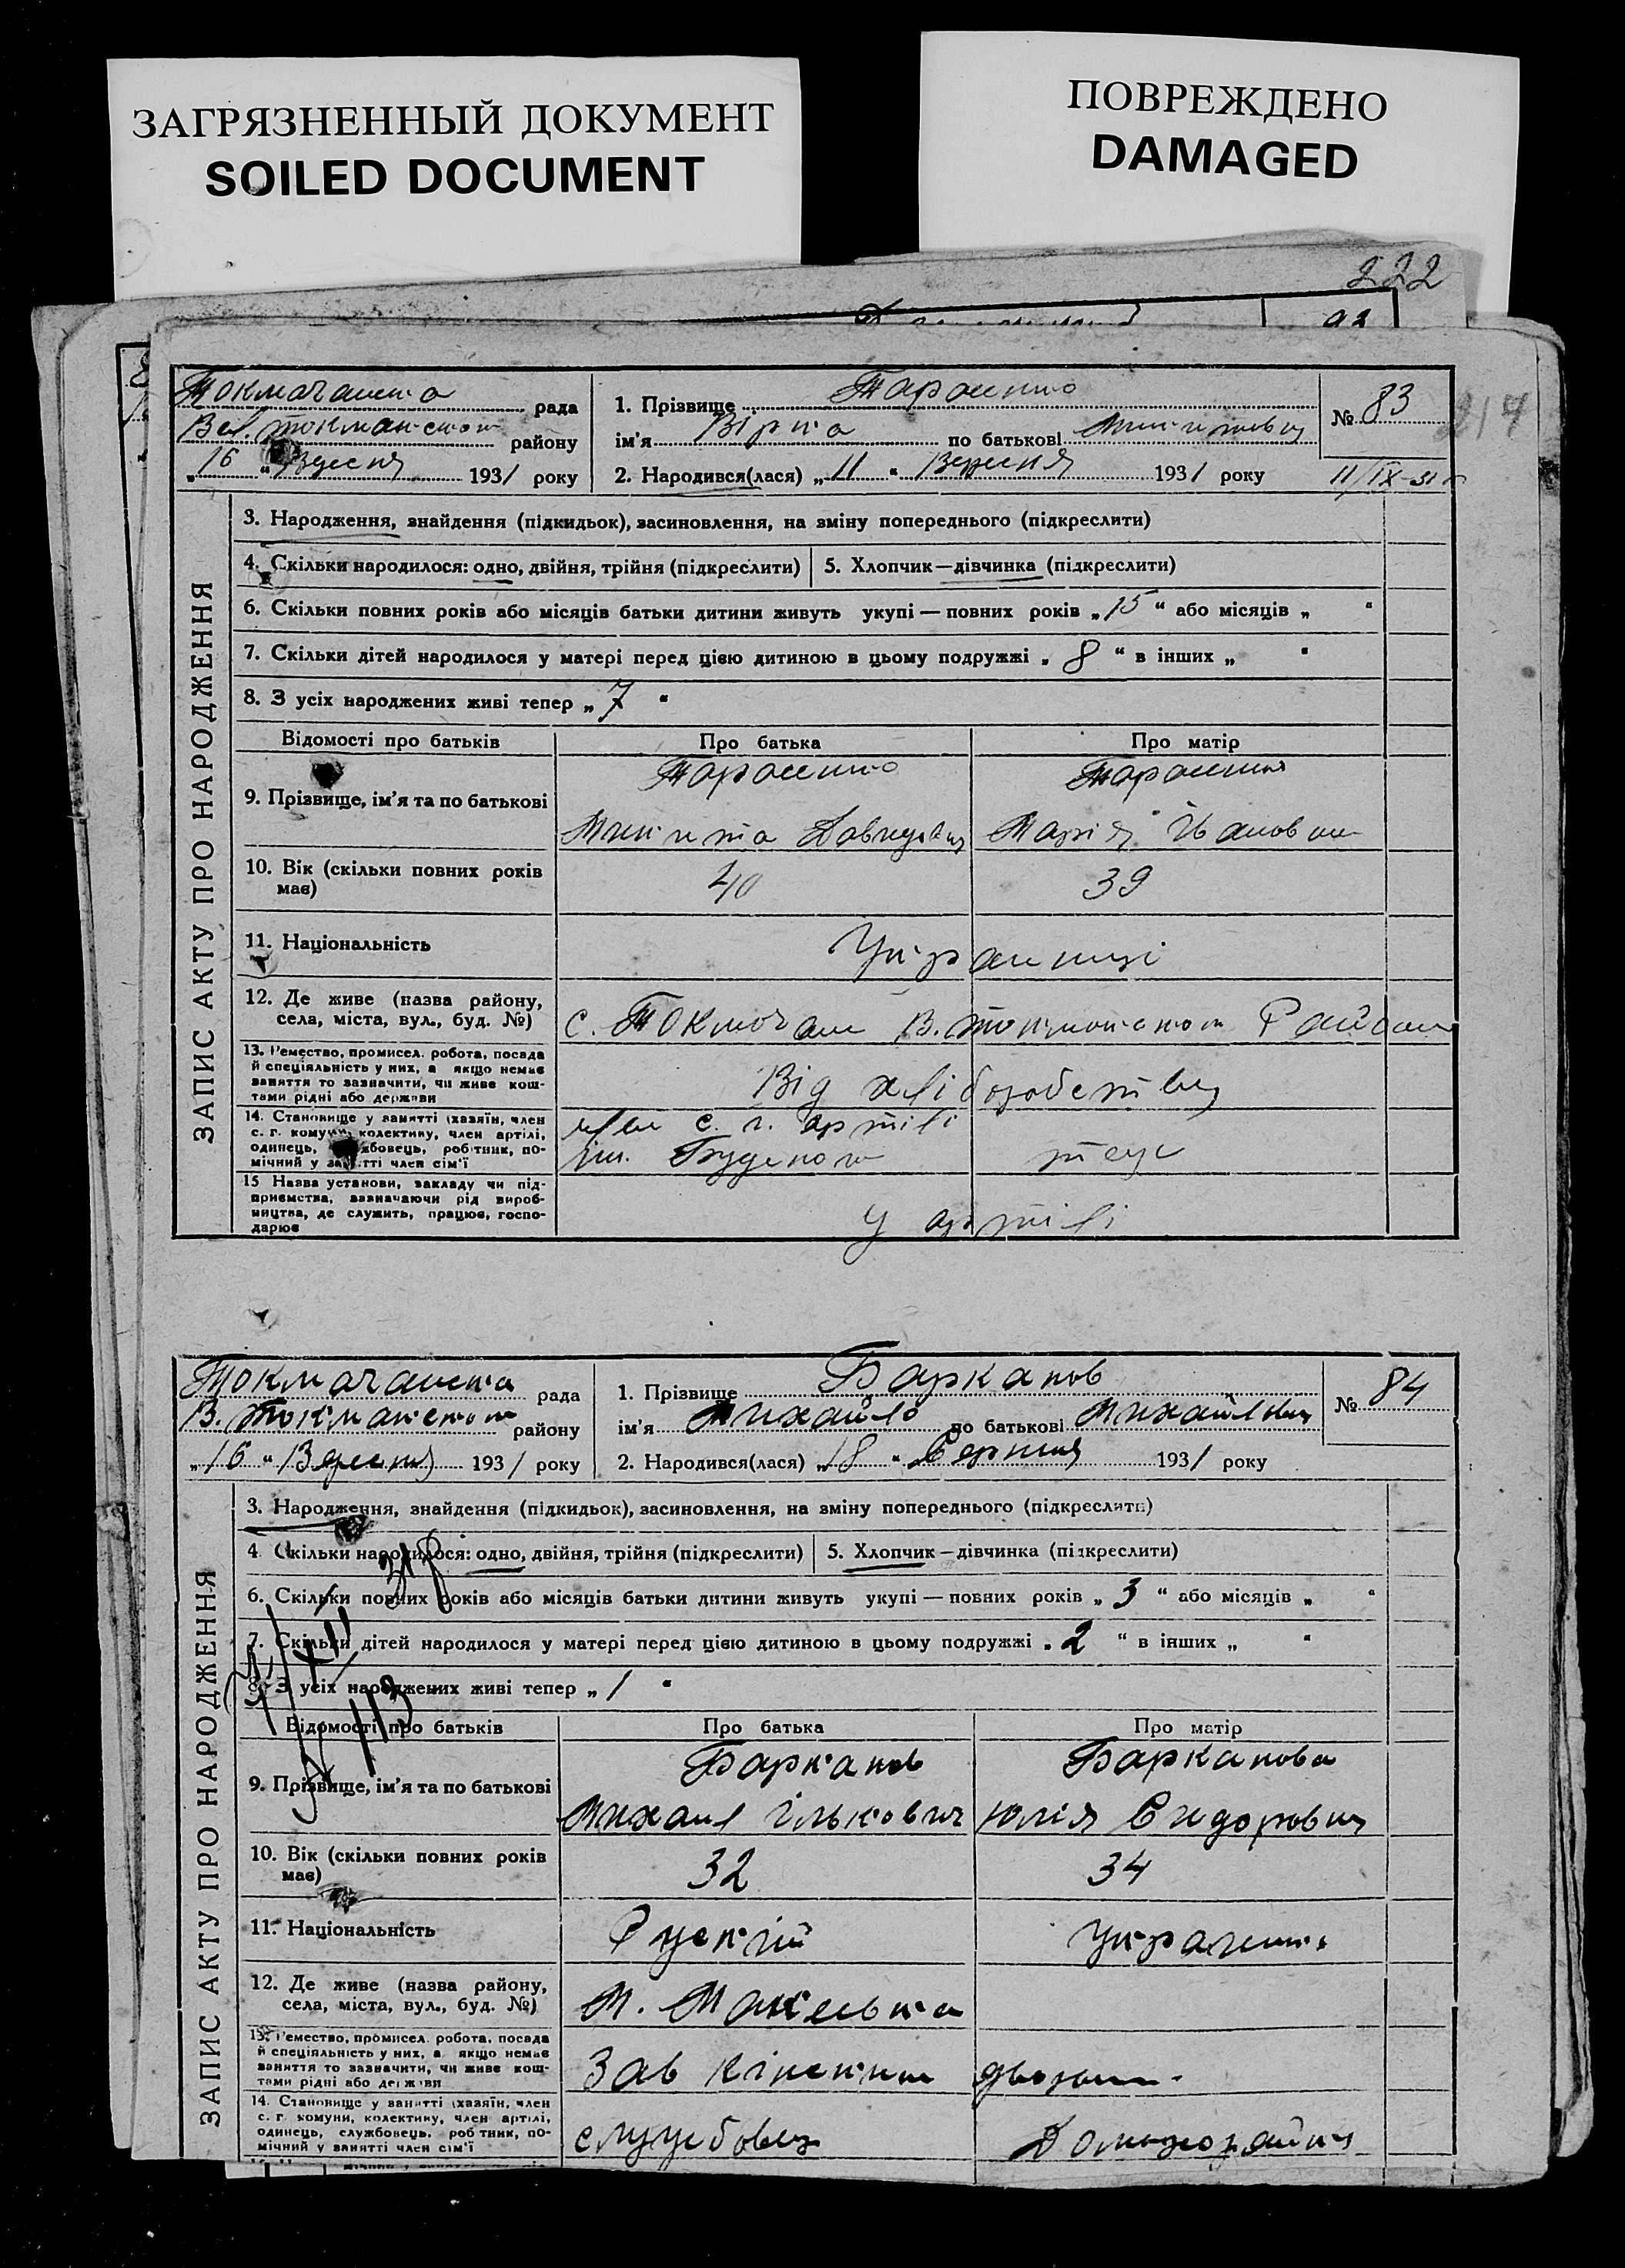 ЗАГРЯЗНЕННЫЙ ДОКУМЕНТ
SOILED DOCUMENT
ПОВРЕЖДЕНО
DAMAGED
222
217
рада
Вел. району
„16“ Вересня 1931 року
1. Прізвище
ім’я Вірка по батькові
2. Народився(лася) „11“ Вересня 1931 року
№ 83
11/IX-31 г
ЗАПИС АКТУ ПРО НАРОДЖЕННЯ
3. Народження, знайдення (підкидьок), засиновлення, на зміну попереднього (підкреслити)
4. Скільки народилося: одно, двійня, трійня (підкреслити) 5. Хлопчик—дівчинка (підкреслити)
6. Скільки повних років або місяців батьки дитини живуть укупі — повних років „15“ або місяців „ “
7. Скільки дітей народилося у матері перед цією дитиною в цьому подружжі „8“ в інших „ “
8. З усіх народжених живі тепер „7“
Відомості про батьків Про батька Про матір
9. Прізвище, ім’я та по батькові
Микита Давидович Марія Івановна
10. Вік (скільки повних років має) 40 39
11. Національність Українці
12. Де живе (назва району, села, міста, вул., буд. №) с. Району
13. Ремество, промисел. робота, посада й спеціяльність у них, а якщо немає заняття то зазначити, чи живе коштами рідні або держави
Від хліборобства
14. Становище у занятті (хазяїн, член с. г. комуни, колективу, член артілі, одинець, службовець, робітник, помічний у занятті член сім’ї
член с. г. артілі
ім. теж
15 Назва установи, закладу чи підприємства, зазначаючи рід виробництва, де служить, працює, господарює
у артілі
рада
В. району
„16“ Вересня 1931 року
1. Прізвище Барканов
ім’я Михайло по батькові
2. Народився(лася) „18“ Серпня 1931 року
№ 84
ЗАПИС АКТУ ПРО НАРОДЖЕННЯ
3. Народження, знайдення (підкидьок), засиновлення, на зміну попереднього (підкреслити)
4 Скільки народилося: одно, двійня, трійня (підкреслити) 5. Хлопчик—дівчинка (підкреслити)
6. Скільки повних років або місяців батьки дитини живуть укупі — повних років „3“ або місяців „ “
7. Скільки дітей народилося у матері перед цією дитиною в цьому подружжі „2“ в інших „ “
8. З усіх народжених живі тепер „1“
Відомості про батьків Про батька Про матір
Барканов Барканова
9. Прізвище, ім’я та по батькові
Михаил Ількович Юлія Сидоровна
10. Вік (скільки повних років має) 32 34
11. Національність Рускій Українка
12. Де живе (назва району, села, міста, вул., буд. №) М.
13. Ремество, промисел. робота, посада й спеціяльність у них, а якщо немає заняття то зазначити, чи живе коштами рідні або держави
Зав кінським двором
14. Становище у занятті (хазяїн, член с. г. комуни, колективу, член артілі, одинець, службовець, робітник, помічний у занятті член сім’ї
службовец Домохозяйка